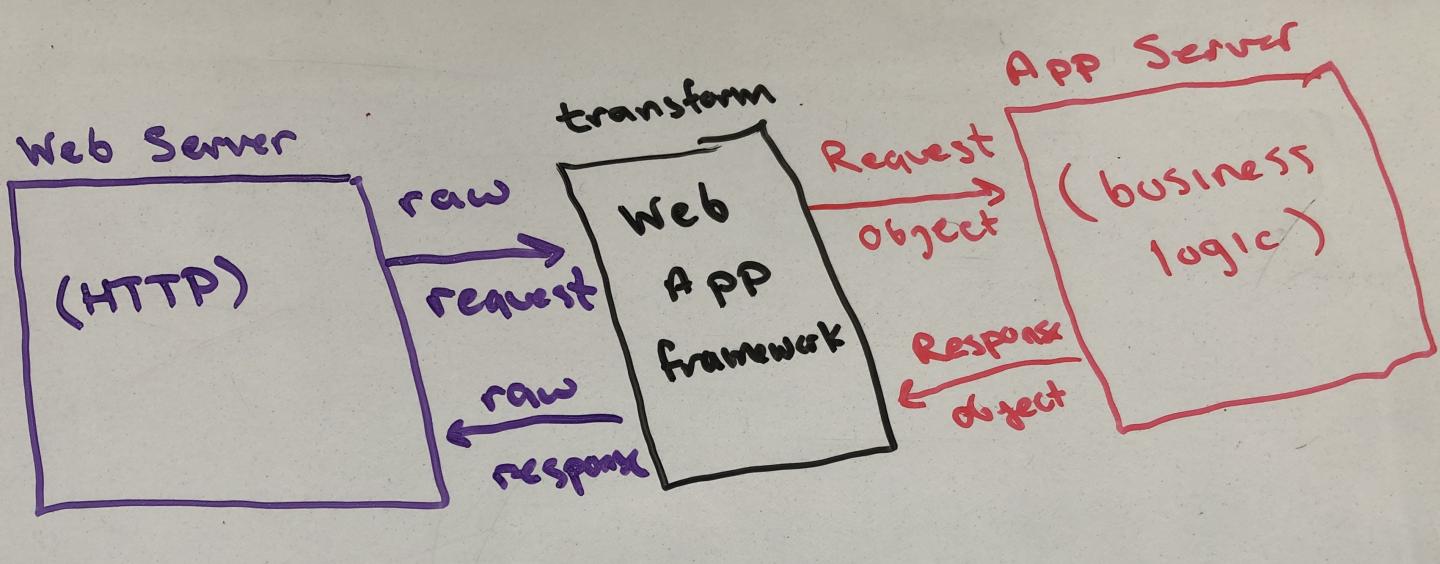 Web Server
(HTTP)
raw
request
raw
response
transform
Web
App
framework
Request
object
Response
object
App Server
(business
logic)